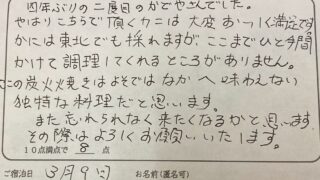 四年ぶりの二度目のかどやさんでした。
やはりこちらで頂くカニは大変おいしく満足です。
かには東北でも採れますが、ここまでひと手間
かけて調理してくれるところがありません。
この炭火焼きはよそではなかなか味わえない
独特な料理だと思います。
また忘れられなく来たくなるかと思います
その際はよろしくお願いいたします。
10点満点で 8 点
ご宿泊日 3月9日 お名前(匿名可)